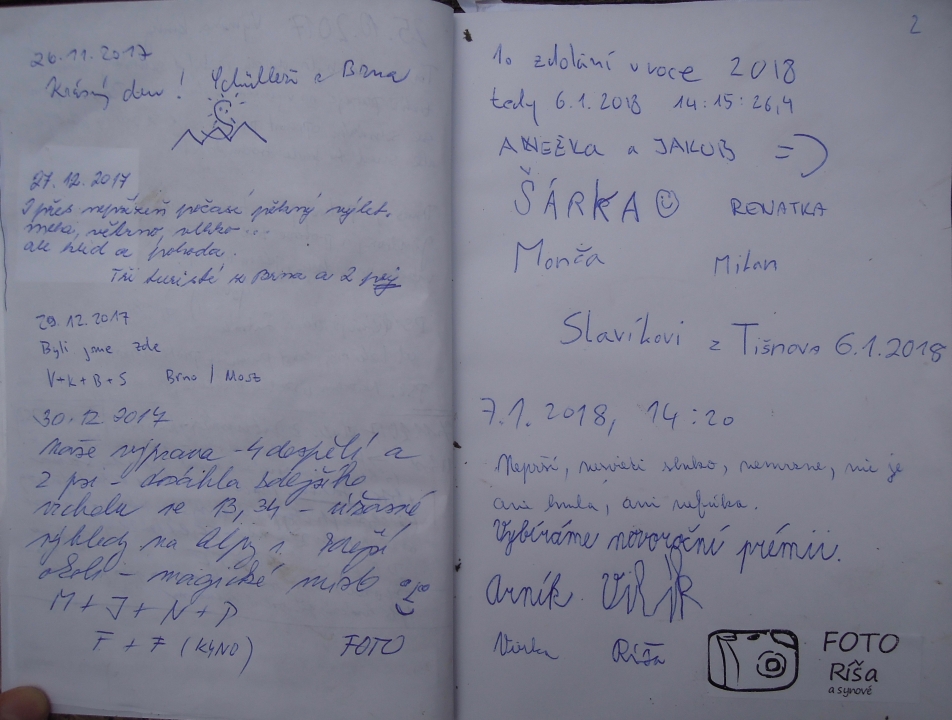 26.11.2017
Krásný den! z Brna
27.12.2017
I přes nepřízeň počasí pěkný výlet,
mlha, větrno, vlhko...
ale klid a pohoda.
Tři turisté z Brna a 2 psi
29.12.2017
Byli jsme zde
V+K+B+S Brno / Most
30.12.2017
Naše výprava - 4 dospělí a
2 psi - dosáhla zdejšího
vrcholu ve 13,34 - úžasné
výhledy na Alpy i zdejší
okolí - magické místo
M + J + N + P
F + F (K4NO) FOTO
2
1. zdolání v roce 2018
tedy 6.1.2018 14:15:26,4
ANEŽKA a JAKUB =)
ŠÁRKA ☺ RENATKA
Monča Milan
Slavíkovi z Tišnova 6.1.2018
7.1.2018, 14:20
Neprší, nesvieti slnko, nemrzne, nie je
ani hmla, ani nefúka.
Vybíráme novoroční prémii.
Arník
Ríša
FOTO
Ríša
a synové